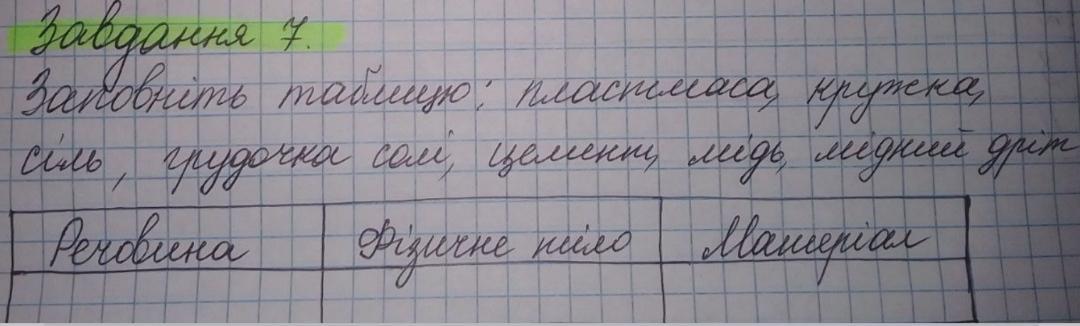 Завдання 7.
Заповніть таблицю: пластмаса, кружка,
сіль, грудочка солі, цемент, мідь, мідний дріт
Речовина Фізичне тіло Матеріал